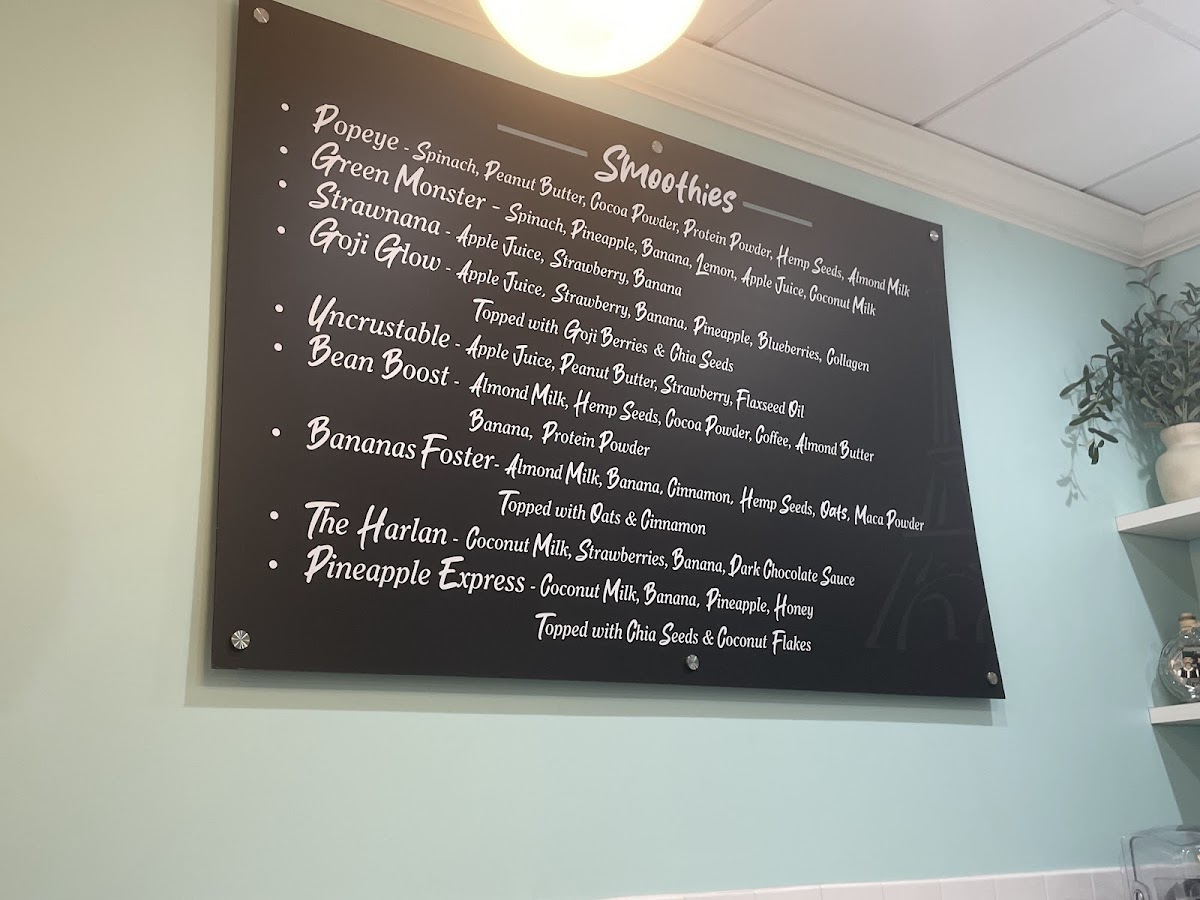 Smoothies
• Popeye - Spinach, Peanut Butter, Cocoa Powder, Protein Powder, Hemp Seeds, Almond Milk
• Green Monster - Spinach, Pineapple, Banana, Lemon, Apple Juice, Coconut Milk
• Strawnana - Apple Juice, Strawberry, Banana
• Goji Glow - Apple Juice, Strawberry, Banana, Pineapple, Blueberries, Collagen
Topped with Goji Berries & Chia Seeds
• Uncrustable - Apple Juice, Peanut Butter, Strawberry, Flaxseed Oil
• Bean Boost - Almond Milk, Hemp Seeds, Cocoa Powder, Coffee, Almond Butter
Banana, Protein Powder
• Bananas Foster- Almond Milk, Banana, Cinnamon, Hemp Seeds, Oats, Maca Powder
Topped with Oats & Cinnamon
• The Harlan - Coconut Milk, Strawberries, Banana, Dark Chocolate Sauce
• Pineapple Express - Coconut Milk, Banana, Pineapple, Honey
Topped with Chia Seeds & Coconut Flakes